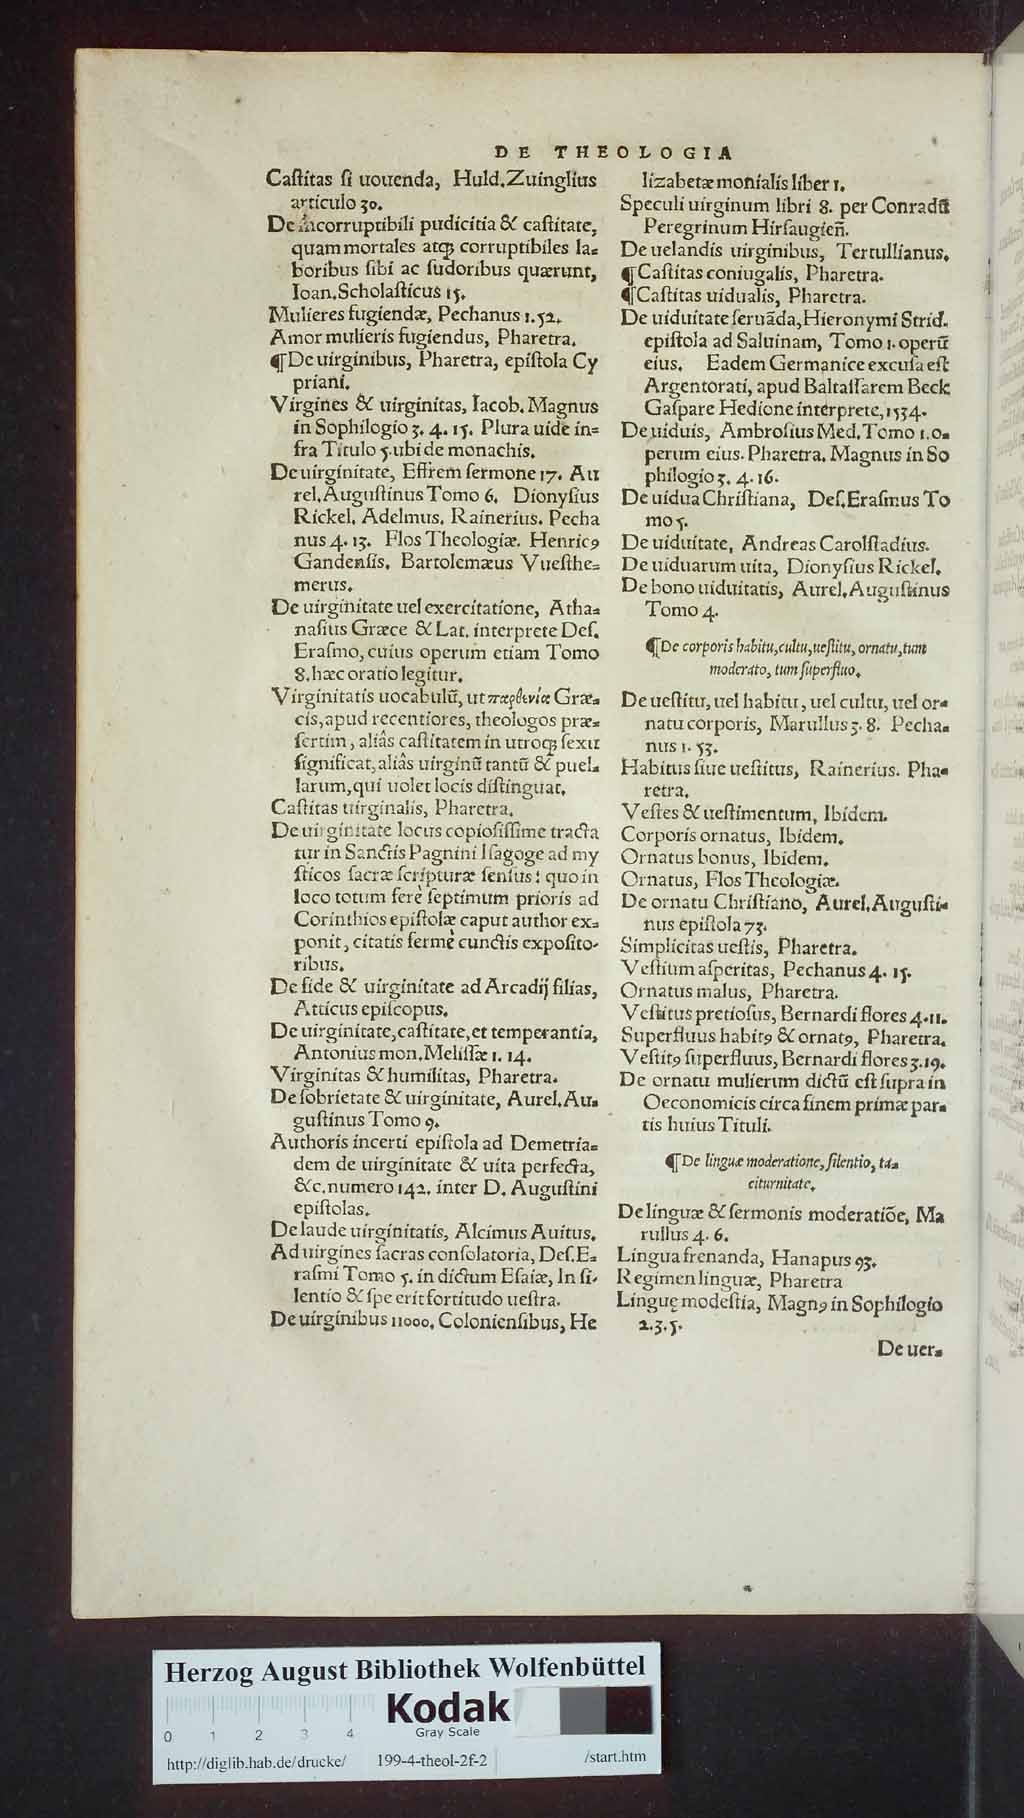 DE THEOLOGIA
Caſtitas ſi uouenda, Huld. Zuinglius
articulo 30.
De incorruptibili pudicitia & caſtitate,
quam mortales atqꝫ corruptibiles la=
boribus ſibi ac ſudoribus quærunt,
Ioan. Scholaſticus 15.
Mulieres fugiendæ, Pechanus 1. 52.
Amor mulieris fugiendus, Pharetra.
¶ De uirginibus, Pharetra, epiſtola Cy
priani.
Virgines & uirginitas, Iacob. Magnus
in Sophilogio 3. 4. 15. Plura uide in=
fra Titulo 5. ubi de monachis.
De uirginitate, Effrem ſermone 17. Au
rel. Auguſtinus Tomo 6. Dionyſius
Rickel. Adelmus. Rainerius. Pecha
nus 4. 13. Flos Theologiæ. Henricꝰ
Gandenſis. Bartolemæus Vueſthe=
merus.
De uirginitate uel exercitatione, Atha=
naſius Græce & Lat. interprete Deſ.
Eraſmo, cuius operum etiam Tomo
8. hæc oratio legitur.
Virginitatis uocabulũ, ut παρθενία Græ=
cis, apud recentiores, theologos præ=
ſertim, aliâs caſtitatem in utroqꝫ ſexu
ſignificat, aliâs uirginũ tantũ & puel=
larum, qui uolet locis diſtinguat.
Caſtitas uirginalis, Pharetra.
De uirginitate locus copioſiſſime tracta
tur in Sanctis Pagnini Iſagoge ad my
ſticos ſacræ ſcripturæ ſenſus: quo in
loco totum ferè ſeptimum prioris ad
Corinthios epiſtolæ caput author ex=
ponit, citatis fermè cunctis expoſito=
ribus.
De fide & uirginitate ad Arcadij filias,
Atticus epiſcopus.
De uirginitate, caſtitate, et temperantia,
Antonius mon. Meliſſæ 1. 14.
Virginitas & humilitas, Pharetra.
De ſobrietate & uirginitate, Aurel. Au=
guſtinus Tomo 9.
Authoris incerti epiſtola ad Demetria=
dem de uirginitate & uita perfecta,
&c. numero 142. inter D. Auguſtini
epiſtolas.
De laude uirginitatis, Alcimus Auitus.
Ad uirgines ſacras conſolatoria, Deſ. E=
raſmi Tomo 5. in dictum Eſaiæ, In ſi=
lentio & ſpe erit fortitudo ueſtra.
De uirginibus 11000. Colonienſibus, He
lizabetæ monialis liber 1.
Speculi uirginum libri 8. per Conradũ
Peregrinum Hirſaugieñ.
De uelandis uirginibus, Tertullianus.
¶ Caſtitas coniugalis, Pharetra.
¶ Caſtitas uidualis, Pharetra.
De uiduitate ſeruãda, Hieronymi Strid.
epiſtola ad Saluinam, Tomo 1. operũ
eius. Eadem Germanice excuſa eſt
Argentorati, apud Baltaſſarem Beck
Gaſpare Hedione interprete, 1534.
De uiduis, Ambroſius Med. Tomo 1. o=
perum eius. Pharetra. Magnus in So
philogio 3. 4. 16.
De uidua Chriſtiana, Deſ. Eraſmus To
mo 5.
De uiduitate, Andreas Carolſtadius.
De uiduarum uita, Dionyſius Rickel.
De bono uiduitatis, Aurel. Auguſtinus
Tomo 4.
¶ De corporis habitu, cultu, ueſtitu, ornatu, tum
moderato, tum ſuperfluo.
De ueſtitu, uel habitu, uel cultu, uel or=
natu corporis, Marullus 3. 8. Pecha=
nus 1. 53.
Habitus ſiue ueſtitus, Rainerius. Pha=
retra.
Veſtes & ueſtimentum, Ibidem.
Corporis ornatus, Ibidem.
Ornatus bonus, Ibidem.
Ornatus, Flos Theologiæ.
De ornatu Chriſtiano, Aurel. Auguſti=
nus epiſtola 73.
Simplicitas ueſtis, Pharetra.
Veſtium aſperitas, Pechanus 4. 15.
Ornatus malus, Pharetra.
Veſtitus pretioſus, Bernardi flores 4. 11.
Superfluus habitꝰ & ornatꝰ, Pharetra.
Veſtitꝰ ſuperfluus, Bernardi flores 3. 19.
De ornatu mulierum dictũ eſt ſupra in
Oeconomicis circa finem primæ par=
tis huius Tituli.
¶ De linguæ moderatione, ſilentio, ta=
citurnitate.
De linguæ & ſermonis moderatiõe, Ma
rullus 4. 6.
Lingua frenanda, Hanapus 93.
Regimen linguæ, Pharetra
Linguę modeſtia, Magnꝰ in Sophilogio
2. 3. 5.
De uer=
Herzog August Bibliothek Wolfenbüttel
Kodak
Gray Scale
0 1 2 3 4
http://diglib.hab.de/drucke/ 199-4-theol-2f-2 /start.htm